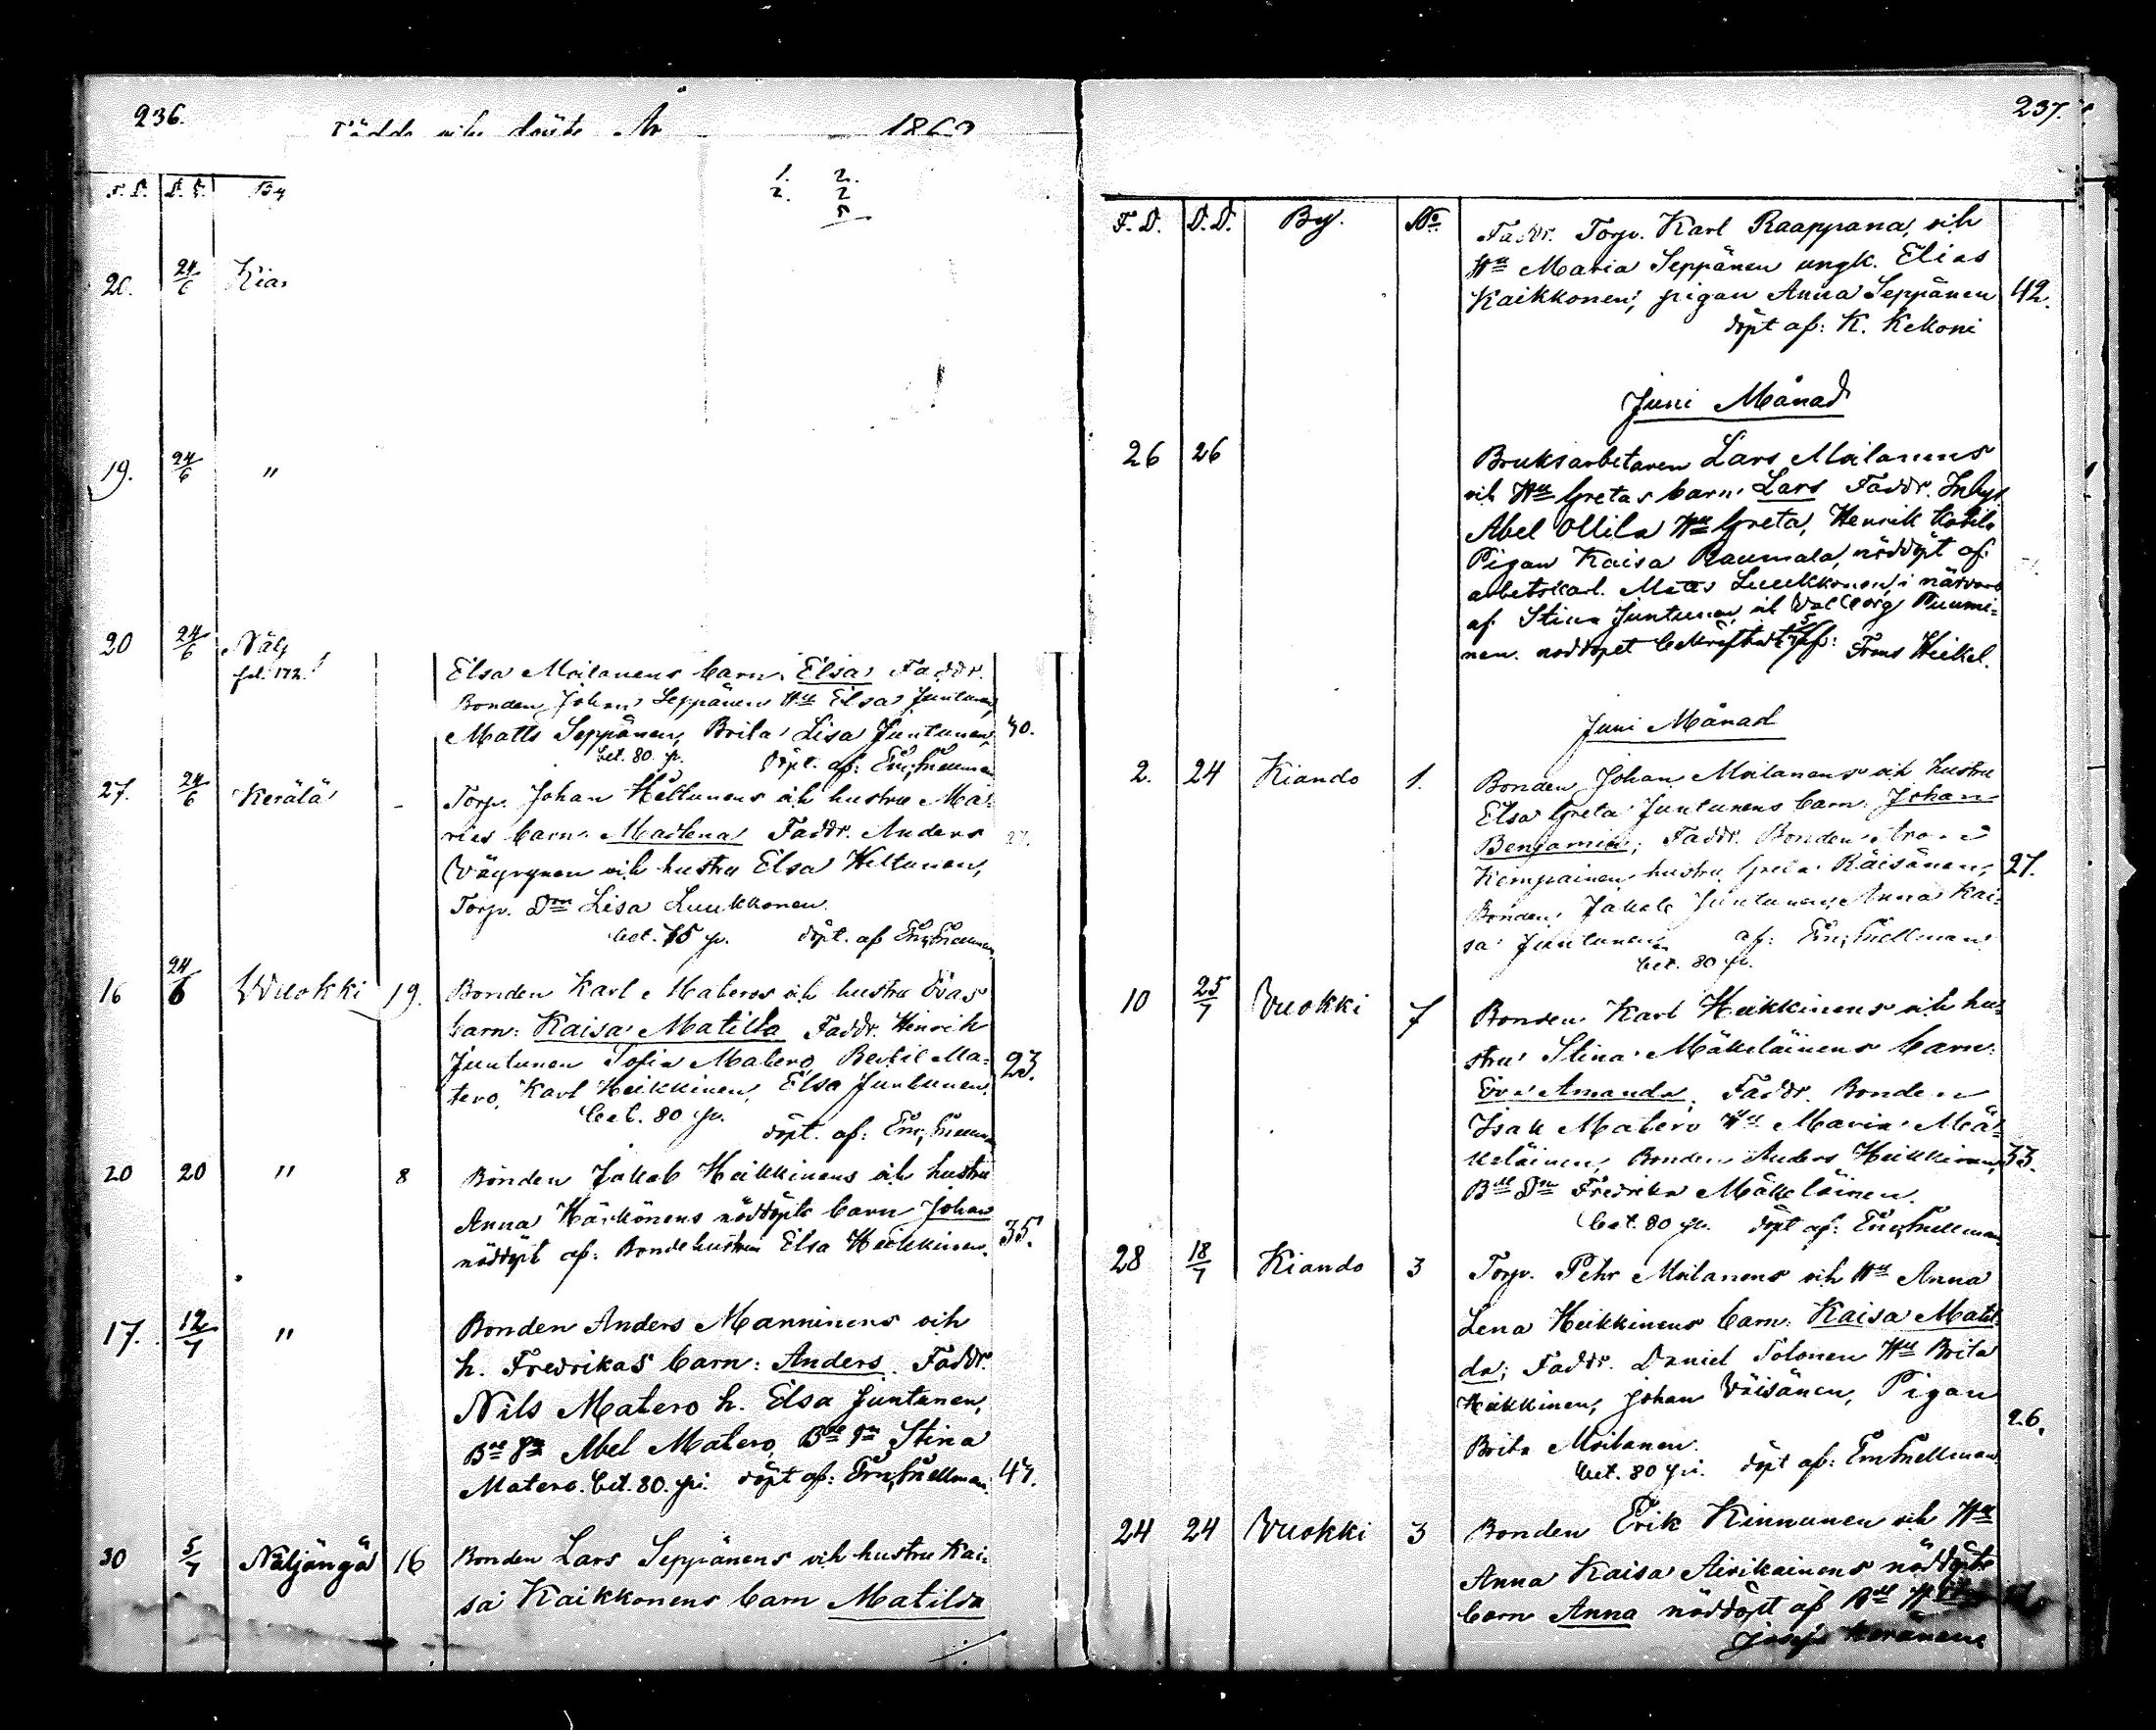 236.
Födde och döpte År 1863
F. D. D. D. By
1. 2.
2. 2
5
20. 24/6 Kian
19. 24/6 "
20 24/6 Nälj
fol. 172.
Elsa Moilanens barn Elsa Faddr.
Bonden Johan Seppänen Hu Elsa Juntunen,
Matts Seppänen, Brita Lisa Juntunen, 30.
bet. 80 p. döpt. af: Em. Snellman
27. 24/6 Kerälä - Torp. Johan Heltunens och hustru Ma-
rias barn: Madlena Faddr. Anders 27.
Väyrynen och hustru Elsa Heltunen,
Torp. Dn Lisa Luukkonen.
bet. 75 p. döpt. af Em. Snellman
16 24/6 Wuokki 19. Bonden Karl Materos och hustru Evas
barn: Kaisa Matilda Faddr. Henrik
Juntunen Sofia Matero, Bertil Ma- 23.
tero, Karl Heikkinen, Elsa Juntunen.
bet. 80 p.
döpt. af: Em. Snellman
20 20 " 8 Bonden Jakob Heikkinens och hustru
Anna Härkönens nöddöpte barn Johan
nöddöpt af: Bondehustrun Elsa Heikkinen. 35.
17. 12/7 " Bonden Anders Manninens och
h. Fredrikas barn: Anders. Faddr.
Nils Matero h. Elsa Juntunen,
Abel Matero, Stina
Matero. bet. 80. pi. döpt af: Em. Snellman. 47.
30 5/7 Näljängä 16 Bonden Lars Seppänens och hustru Kai-
sa Kaikkonens barn Matilda
237.
F. D. D. D. By. No.
Faddr. Torp. Karl Raappana, och
Hu Maria Seppänen ungk. Elias
Kaikkonen, pigan Anna Seppänen 42.
döpt af: K. Kekoni
Juni Månad
26 26 Bruksarbetaren Lars Moilanens
och Hu Gretas barn: Lars Faddr. Inhys
Abel Ollila Hu Greta, Henrik
Pigan Kaisa Raumala, nöddöpt af
arbetskarl. Matts Luukkonen, i närvaro
af Stina Juntunen och Walborg Tuumi-
nen. nöddopet bekräftadt af: Frans Heikel.
Juni Månad
2. 24 Kiando 1. Bonden Johan Moilanens och hustru
Elsa Greta Juntunens barn: Johan
Benjamin; Faddr. Bonden
Kemppainen hustru Greta Räisänen, 27.
Bonden Jakob Juntunen, Anna Kai-
sa Juntunen af: Em. Snellman
bet. 80 p.
10 25/7 Vuokki 7 Bonden Karl Heikkinens och hu-
stru Stina Mäkeläinens barn:
Eva Amanda. Faddr. Bonden
Isak Matero Hu Maria Mä-
keläinen, Bonden Anders Heikkinen, 33.
Fredrika Mäkeläinen.
bet. 80 p. döpt af: Em. Snellman
28 18/7 Kiando 3 Torp. Pehr Moilanens och Hu Anna
Lena Heikkinens barn: Kaisa Matil-
da; Faddr. Daniel Tolonen Hu Brita
Heikkinen, Johan Väisänen, Pigan
Brita Moilanen. 26.
bet. 80 pi. döpt af: Em. Snellman
24 24 Vuokki 3 Bonden Erik Kinnunen och Hu
Anna Kaisa Airikainens nöddöpte
barn Anna nöddöpt af
Josef Keränen